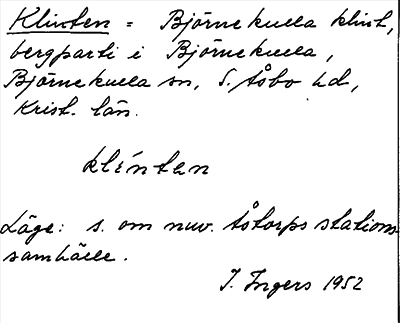 Klinten = Björnekulla klint,
bergparti i Björnekulla,
Björnekulla sn, S. Åsbo hd,
Krist. län.
klíntan
Läge: s. om nuv. Åstorps stations-
samhälle.
I. Ingers 1952